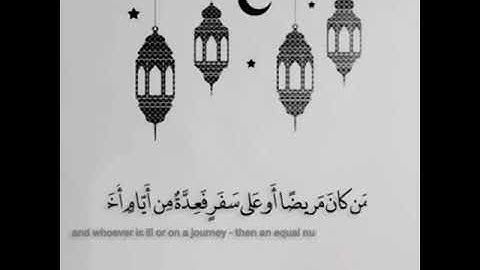 مَن كَانَ مَرِيضًا أَو عَلَى سَفَرٍ فَعِدَّةٌ مِن أَيَّامٍ أُخَ
and whoever is ill or on a journey - then an equal nu